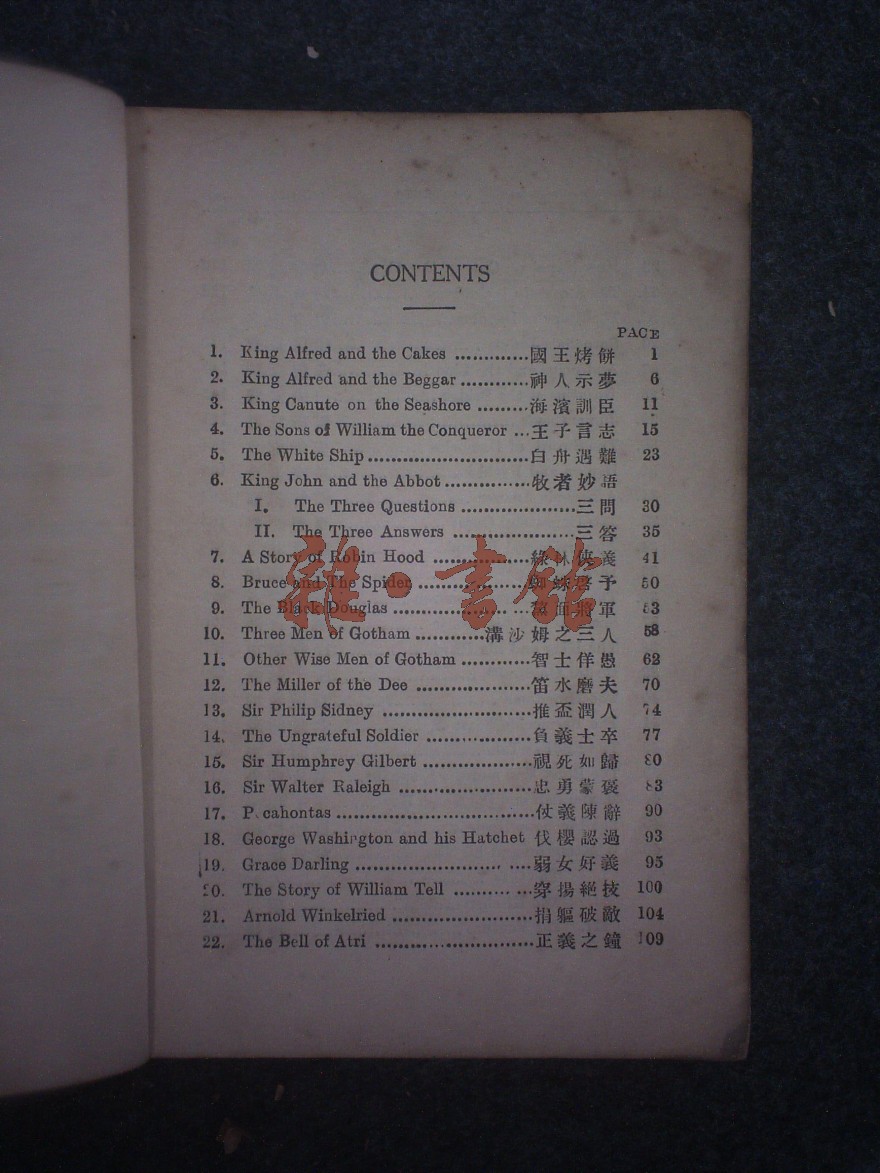 CONTENTS
PAGE
1. King Alfred and the Cakes .............國王烤餅 1
2. King Alfred and the Beggar............神人示夢 6
3. King Canute on the Seashore .........海濱訓臣 11
4. The Sons of William the Conqueror ...王子言志 15
5. The White Ship.............................白舟遇難 23
6. King John and the Abbot...............牧者妙語
I. The Three Questions .....................三問 30
II. The Three Answers ......................三答 35
7. A Story of Robin Hood ..................綠林俠義 41
8. Bruce and The Spider....................蜘蛛啓予 50
9. The Black Douglas........................面將軍 53
10. Three Men of Gotham ............溝沙姆之三人 58
11. Other Wise Men of Gotham ............智士佯愚 62
12. The Miller of the Dee ....................笛水磨夫 70
13. Sir Philip Sidney ...........................推盃潤人 74
14. The Ungrateful Soldier ..................負義士卒 77
15. Sir Humphrey Gilbert....................視死如歸 80
16. Sir Walter Raleigh ........................忠勇蒙褒 83
17. Pocahontas...................................仗義陳辭 90
18. George Washington and his Hatchet 伐櫻認過 93
19. Grace Darling ..............................弱女好義 95
20. The Story of William Tell .............穿揚絕技 100
21. Arnold Winkelried ........................捐軀破敵 104
22. The Bell of Atri ...........................正義之鐘 109
雜·書館